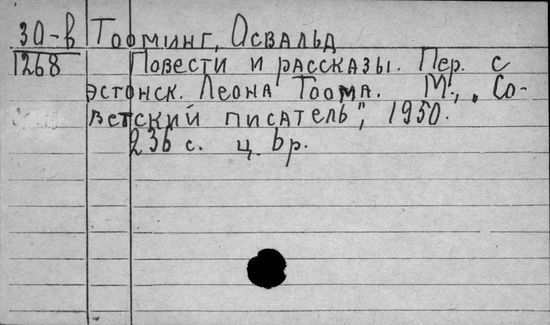 30-в Тооминг, Освальд
1268 Повести и рассказы. Пер. с
эстонск. Леона Тоома. М., „Со-
ветский писатель", 1950.
236 с. ц. 6р.